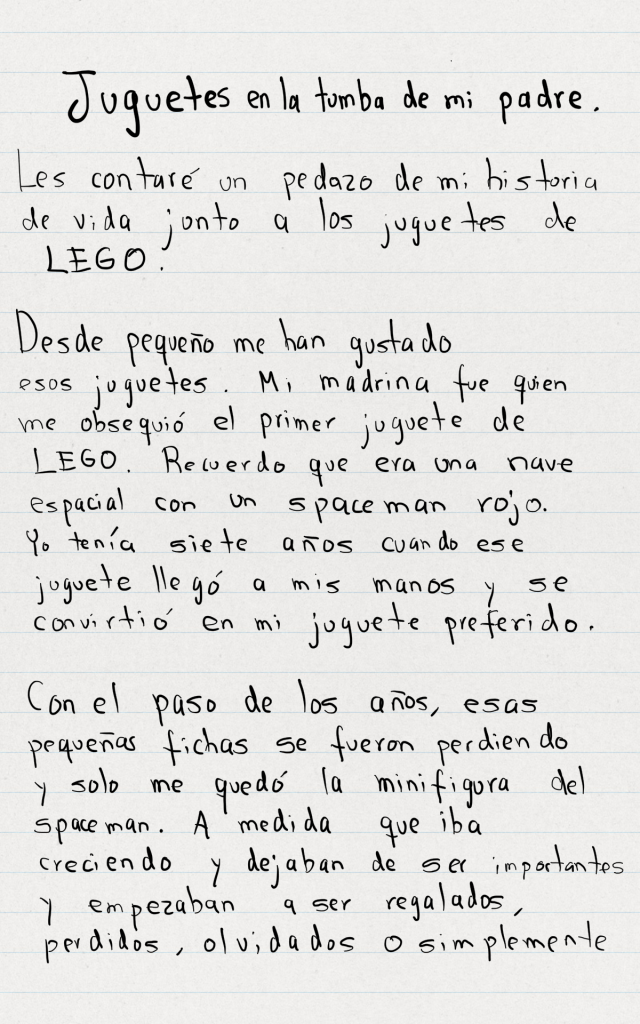 Juguetes en la tumba de mi padre.
Les contaré un pedazo de mi historia
de vida junto a los juguetes de
LEGO.
Desde pequeño me han gustado
esos juguetes. Mi madrina fue quien
me obsequió el primer juguete de
LEGO. Recuerdo que era una nave
espacial con un spaceman rojo.
Yo tenía siete años cuando ese
juguete llegó a mis manos y se
convirtió en mi juguete preferido.
Con el paso de los años, esas
pequeñas fichas se fueron perdiendo
y solo me quedó la minifigura del
spaceman. A medida que iba
creciendo y dejaban de ser importantes
y empezaban a ser regalados,
perdidos, olvidados o simplemente